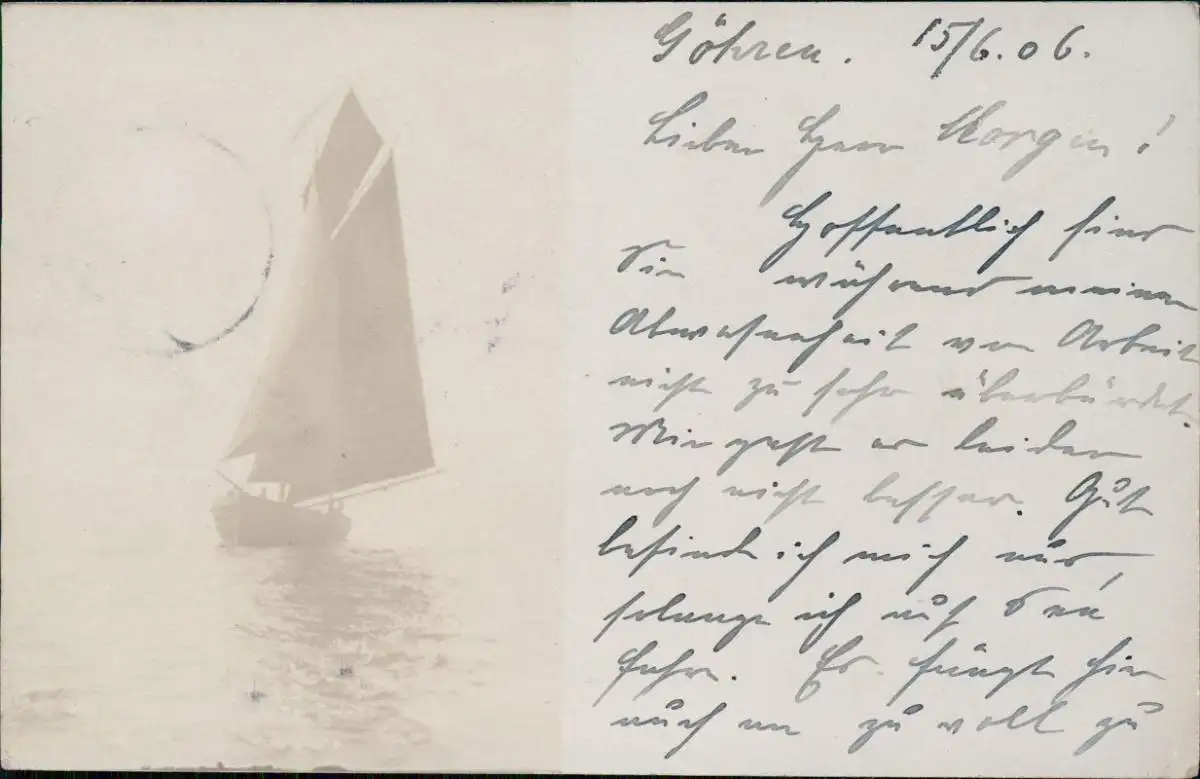 Göhren. 15/6.06.
Lieber Herr Morgen!
Hoffentlich sind
Sie während meiner
Abwesenheit von Arbeit
nicht zu sehr überbürdet.
Mir geht es leider
noch nicht besser. Gut
befinde ich mich nur,
solange ich auf See
fahre. Es fängt hier
auch an zu voll zu